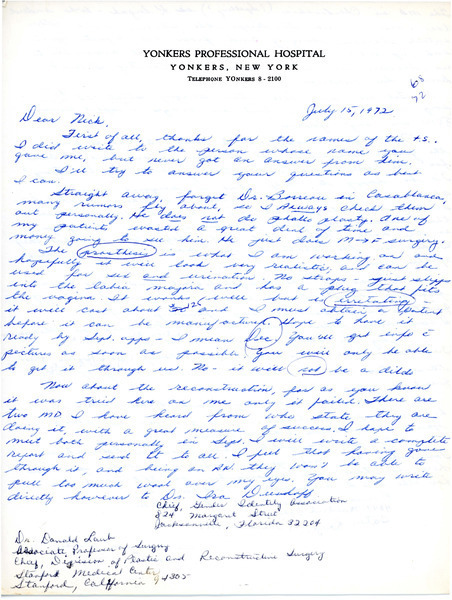 YONKERS PROFESSIONAL HOSPITAL
YONKERS, NEW YORK
TELEPHONE YONKERS 8 - 2100
68
72
July 15, 1972
Dear Nick,
First of all, thanks for the names of the
I did write to the person whose name you
gave me, but never got an answer from him.
I'll try to answer your questions as best
I can.
Straight away, forget Dr. in Casablanca,
many rumors fly about, so I always check them
out personally. He does not do phallo plasty. One of
my patients wasted a great deal of time and
money going to see him. He just does M→F surgery.
The prosthesis is what I am working on and
hopefully it will look very realistic, and can be
used for sex and urination. No straps - just slips
into the labia majora and has a plug that fits
the vagina. It works well but is irritating -
it will cost about and I must obtain a patent
before it can be manufactured. Hope to have it
ready by Sept. - I mean Dec. You'll get info &
pictures as soon as possible. You will only be able
to get it through us. No - it will not be a dildo
Now about the reconstruction, far as you know
it was tried two on me only it failed. There are
two MD I have heard from who state they are
doing it, with a great measure of success. I hope to
meet both personally in Sept. I will write a complete
report and send it to all. I feel that having gone
through it, and being an RN they won't be able to
pull too much wool over my eyes. You may write
directly however to Dr. Ira
Chief, Gender Identity Association
Margaret Street
Jacksonville, Florida 32204
Dr. Donald Laub
Associate Professor of Surgery
Chief, Division of Plastic and Reconstructive Surgery
Stanford Medical Center
Stanford, California 94305